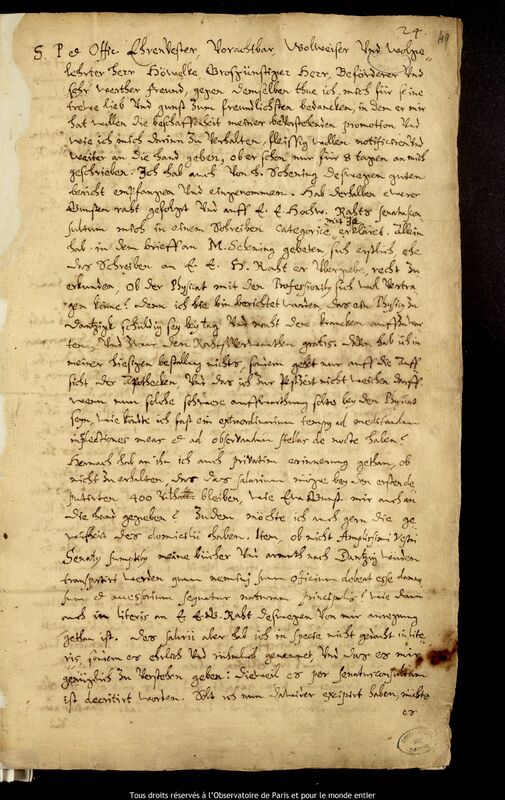 24. 49
S. P. et Offic. Ehrenvester, Vorachtbar, Wolweiser Und Wolge-
lehrter Herr Höwelke Grosgünstiger Herr, Beförderer Und
sehr werther freund, gegen demselben thue ich mich für seine
trewe lieb Und gunst zum freundlichsten bedancken, in dem er mir
hat wollen die beschaffenheit meiner bevorstehenden promotion Und
wie ich mich darinn zu Verhalten, fleissig wollen notificiren Und
weiter an die hand geben, ob er schon nur für 8 tagen an mich
geschrieben. Ich hab auch von H. Schening deswegen guten
bericht empfangen Und eingenommen. Hab derhalben ewerer
Gunsten raht gefolget Und auff E. E. Hochw. Rahts senatuscon-
sultum mich in einem Schreiben categorice mit Ja erkläret. Allein
hab in dem brieff an M. Schening gebeten sich erstlich, ehe
das Schreiben an E. E. H. Raht er Ubergebe, recht zu
erkunden, ob der Physicat mit den Professionib. sich wol Vertra-
gen könne? denn ich bin berichtet worden, das ein Physicus
Dantzigk schuldig sey bey tag Und nacht den krancken auffzuwar-
ten, Und zwar den Rahtsverwanten gratis. Denn hab ich in
meiner hiesigen bestallung nichts, sonern gehet nur auff die Auff-
sicht der Apothecken, Und das ich zur Pestzeit nicht weichen dorff.
wenn nun solche schwere auffwarthung solte bey den Physicat
seyn, wie könte ich fast ein extraordinarium tempus ad meditandum
inflectiones meas et ad observandum stellas de nocte haben?
Hernach hab an ihn ich auch privatim erinnerung gethan, ob
nicht zu erhalten, das das salarium möge bey den erst de-
putirten 400 bleiben, wie Ewr Gunst. mir auch an
die hand gegeben? Zudem möchte ich auch gern die ge-
wisheit des domicilii haben. Item, ob nicht Amplissimi Vestri
Senatus sumptibus meine bücher Und armuth nach Dantzig können
transportirt werden quum nemini suum officium debeat esse damno-
sum et accessorium sequatur naturam principalis? wie dann
auch in literis an E. E. H. Raht deswegen von mir anregung
gethan ist. Des salarii aber hab ich in specie nicht gedacht in lite-
ris, sonern es ehrlich Und rühmlich genennet, Und das es mir
gnüglich zu verstehen geben: dieweil es per Senatusconsultum
ist decretirt worden. Solt ich nun darwider excipirt haben, möchte
er
Tous droits réservés à l'Observatoire de Paris et pour le monde entier